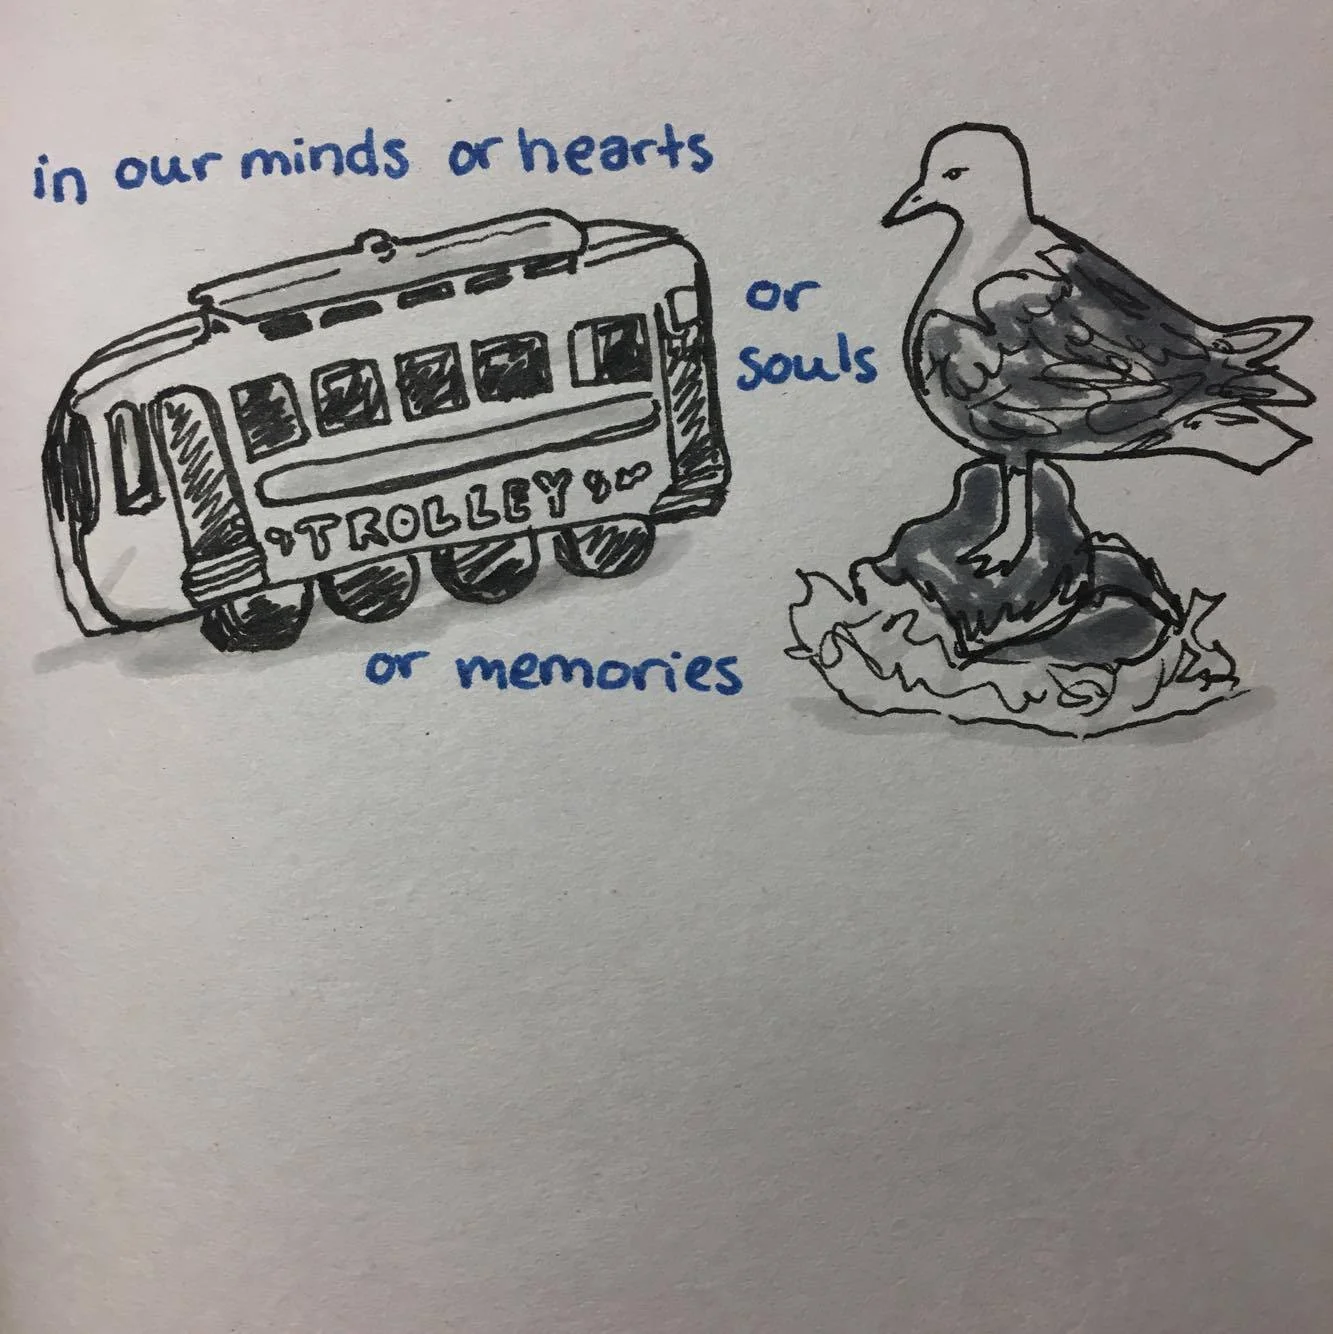 in our minds or hearts
or
souls
TROLLEY
or memories